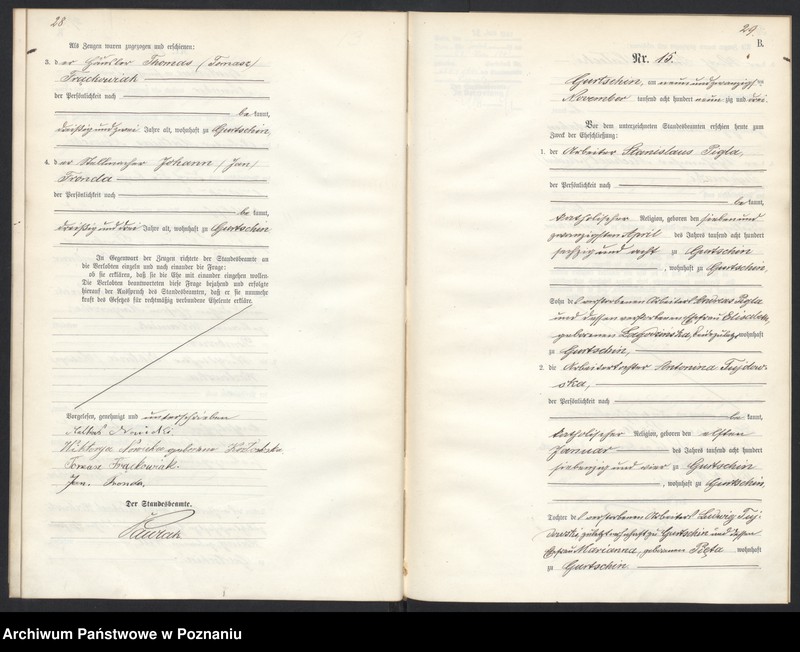 28
Als Zeugen waren zugezogen und erschienen:
3. der Häusler Thomas /Tomasz/
Frąckowiak
der Persönlichkeit nach
be kannt,
dreißig und zwei Jahre alt, wohnhaft zu Gurtschin,
4. der Stellmacher Johann /Jan/
Fronda
der Persönlichkeit nach
be kannt,
dreißig und drei Jahre alt, wohnhaft zu Gurtschin
In Gegenwart der Zeugen richtete der Standesbeamte an
die Verlobten einzeln und nach einander die Frage:
ob sie erklären, daß sie die Ehe mit einander eingehen wollen.
Die Verlobten beantworteten diese Frage bejahend und erfolgte
hierauf der Ausspruch des Standesbeamten, daß er sie nunmehr
kraft des Gesetzes für rechtmäßig verbundene Eheleute erkläre.
Vorgelesen, genehmigt und unterschrieben
Nowicki.
Wiktorya geborene
Tomasz Frąckowiak.
Jan Fronda.
Der Standesbeamte.
29.
B.
Nr. 15.
Gurtschin, am neun und zwanzigsten
November tausend acht hundert neun zig und drei
Vor dem unterzeichneten Standesbeamten erschien heute zum
Zweck der Eheschließung:
1. der Arbeiter Stanislaus Pigla,
der Persönlichkeit nach
be kannt,
katholischer Religion, geboren den sieben und
zwanzigsten April des Jahres tausend acht hundert
sechzig und acht zu Gurtschin
, wohnhaft zu Gurtschin,
Sohn des verstorbenen Arbeiters Andreas Pigla
und dessen verstorbenen Ehefrau Elisabeth,
geborenen beide zuletzt wohnhaft
zu Gurtschin,
2. die Arbeitertochter Antonina Fujdow-
ska,
der Persönlichkeit nach
be kannt,
katholischer Religion, geboren den elften
Januar des Jahres tausend acht hundert
siebenzig und vier zu Gurtschin
, wohnhaft zu Gurtschin,
Tochter des verstorbenen Arbeiters Ludwig Fuj-
dowski zuletzt wohnhaft zu Gurtschin und dessen
Ehefrau Marianna, geborenen wohnhaft
zu Gurtschin
Archiwum Państwowe w Poznaniu